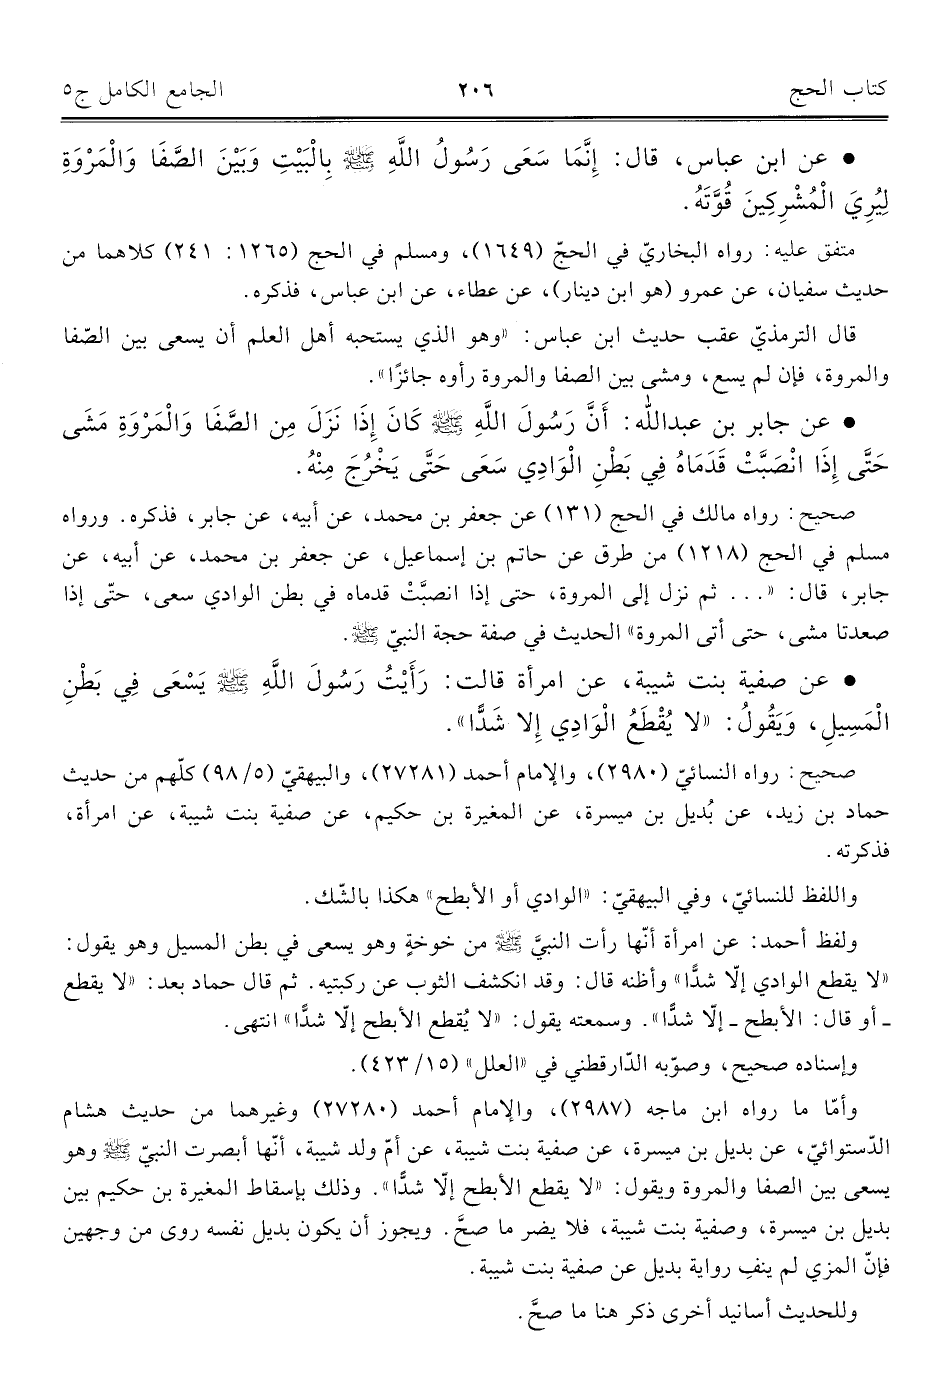 كتاب الحج ٢٠٦ الجامع الكامل ج٥
• عن ابن عباس، قال: إِنَّمَا سَعَى رَسُولُ اللَّهِ ﷺ بِالْبَيْتِ وَبَيْنَ الصَّفَا وَالْمَرْوَةِ
لِيُرِيَ الْمُشْرِكِينَ قُوَّتَهُ.
متفق عليه: رواه البخاريّ في الحجّ (١٦٤٩)، ومسلم في الحج (١٢٦٥: ٢٤١) كلاهما من
حديث سفيان، عن عمرو (هو ابن دينار)، عن عطاء، عن ابن عباس، فذكره.
قال الترمذيّ عقب حديث ابن عباس: «وهو الذي يستحبه أهل العلم أن يسعى بين الصّفا
والمروة، فإن لم يسع، ومشى بين الصفا والمروة رأوه جائزًا».
• عن جابر بن عبدالله: أَنَّ رَسُولَ اللَّهِ ﷺ كَانَ إِذَا نَزَلَ مِن الصَّفَا وَالْمَرْوَةِ مَشَى
حَتَّى إِذَا انْصَبَّتْ قَدَمَاهُ فِي بَطْنِ الْوَادِي سَعَى حَتَّى يَخْرُجَ مِنْهُ.
صحيح: رواه مالك في الحج (١٣١) عن جعفر بن محمد، عن أبيه، عن جابر، فذكره. ورواه
مسلم في الحج (١٢١٨) من طرق عن حاتم بن إسماعيل، عن جعفر بن محمد، عن أبيه، عن
جابر، قال: «... ثم نزل إلى المروة، حتى إذا انصبَّتْ قدماه في بطن الوادي سعى، حتّى إذا
صعدتا مشى، حتى أتى المروة» الحديث في صفة حجة النبيّ ﷺ.
• عن صفية بنت شيبة، عن امرأة قالت: رَأَيْتُ رَسُولَ اللَّهِ ﷺ يَسْعَى فِي بَطْنِ
الْمَسِيلِ، وَيَقُولُ: «لا يُقْطَعُ الْوَادِي إِلا شَدًّا».
صحيح: رواه النسائيّ (٢٩٨٠)، والإمام أحمد (٢٧٢٨١)، والبيهقيّ (٥/ ٩٨) كلّهم من حديث
حماد بن زيد، عن بُديل بن ميسرة، عن المغيرة بن حكيم، عن صفية بنت شيبة، عن امرأة،
فذكرته.
واللفظ للنسائيّ، وفي البيهقيّ: «الوادي أو الأبطح» هكذا بالشّك.
ولفظ أحمد: عن امرأة أنّها رأت النبيَّ ﷺ من خوخةٍ وهو يسعى في بطن المسيل وهو يقول:
«لا يقطع الوادي إلّا شدًّا» وأظنه قال: وقد انكشف الثوب عن ركبتيه. ثم قال حماد بعد: «لا يقطع
ـ أو قال: الأبطح ـ إلّا شدًّا». وسمعته يقول: «لا يُقطع الأبطح إلّا شدًّا» انتهى.
وإسناده صحيح، وصوّبه الدّارقطني في «العلل» (١٥/ ٤٢٣).
وأمّا ما رواه ابن ماجه (٢٩٨٧)، والإمام أحمد (٢٧٢٨٠) وغيرهما من حديث هشام
الدّستوائيّ، عن بديل بن ميسرة، عن صفية بنت شيبة، عن أمّ ولد شيبة، أنّها أبصرت النبيّ ﷺ وهو
يسعى بين الصفا والمروة ويقول: «لا يقطع الأبطح إلّا شدًّا». وذلك بإسقاط المغيرة بن حكيم بين
بديل بن ميسرة، وصفية بنت شيبة، فلا يضر ما صحَّ. ويجوز أن يكون بديل نفسه روى من وجهين
فإنّ المزي لم ينفِ رواية بديل عن صفية بنت شيبة.
وللحديث أسانيد أخرى ذكر هنا ما صحَّ.